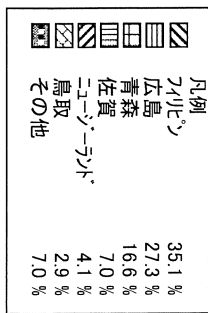 凡例
フィリピン 35.1 %
広島 27.3 %
青森 16.6 %
佐賀 7.0 %
ニュージーランド 4.1 %
鳥取 2.9 %
その他 7.0 %